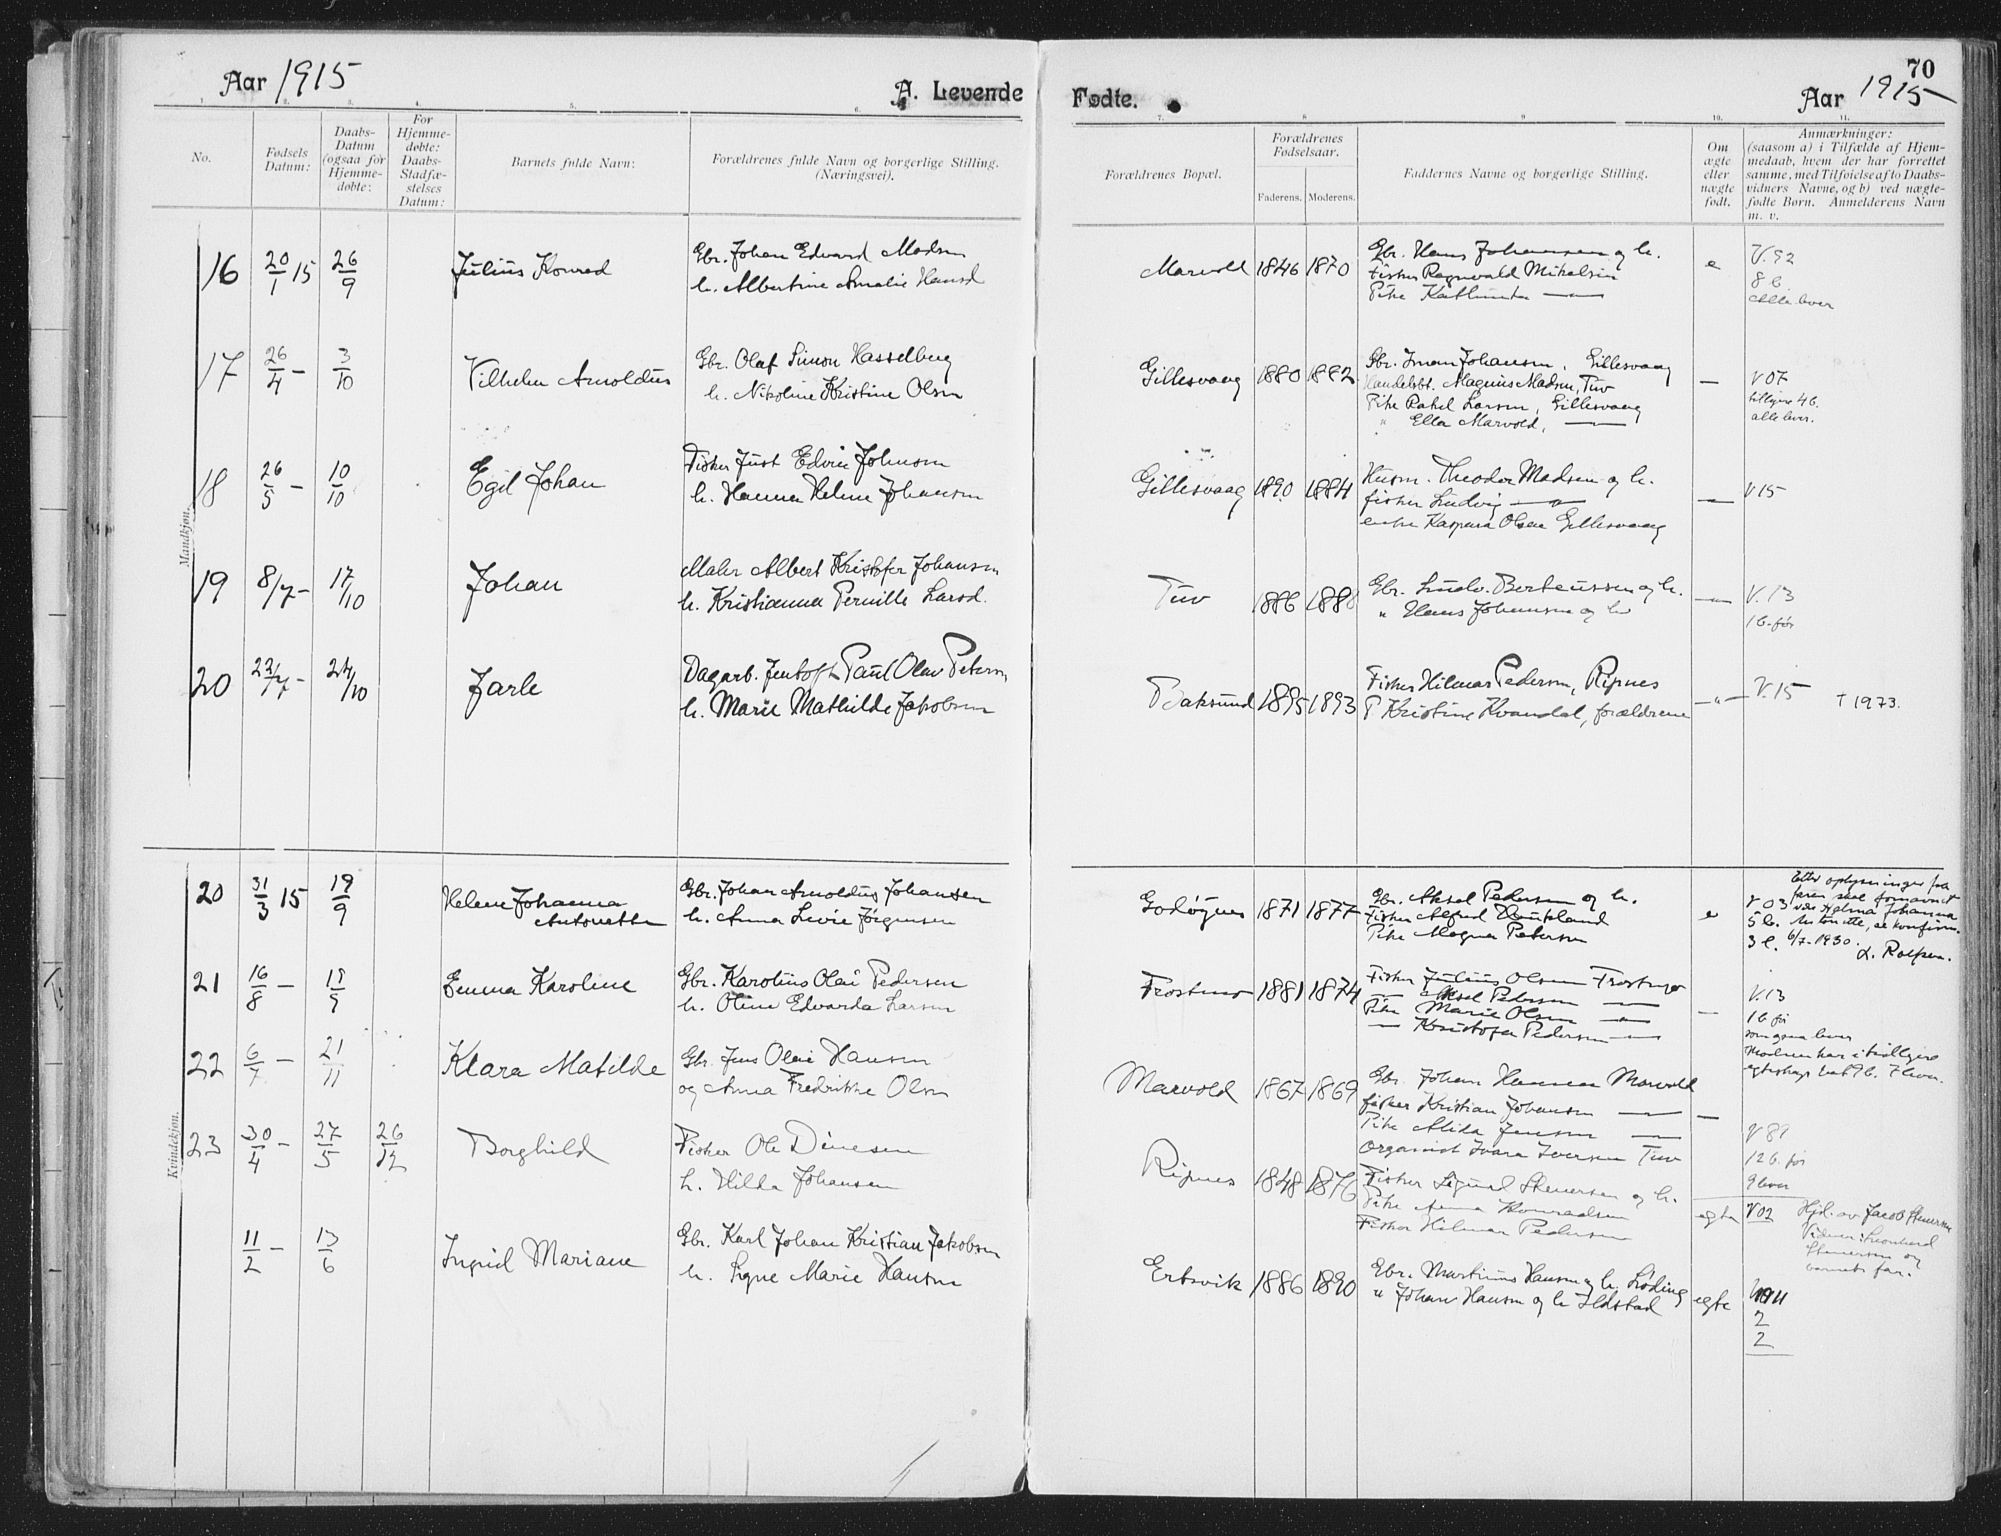 Aar 1915
A. Levende
1. 2. 3. 4. 5. 6.
No.
Fødsels Datum:
Daabs-Datum (ogsaa for Hjemme-døbte:
For Hjemme-døbte: Daabs-Stadfæ-stelses Datum:
Barnets fulde Navn:
Forældrenes fulde Navn og borgerlige Stilling. (Næringsvei).
Mandkjøn.
16 20/1 15 26/9 Julius Konrad Gbr. Johan Edvard Madsen
h. Albertine Amalie Hansd
17 26/4 - 3/10 Vilhelm Arnoldus Gbr. Olaf Simon Hasselberg
h. Nikoline Kristine Olsen
18 26/5 - 10/10 Egil Johan Fisker Just Edvin Johnsen
h. Hanna Helene Johansen
19 8/7 - 17/10 Johan Maler Albert Kristofer Johansen
h. Kristianna Pernille Larsd.
20 22/7 - 24/10 Jarle Dagarb. Jentoft Paul Olav Petersen
h. Marie Mathilde Jakobsen
Kvindekjøn.
20 31/3 15 19/9 Helene Johanna Antonette Gbr. Johan Arnoldus Johansen
h. Anna Lovise Jørgensen
21 16/8 - 19/9 Emma Karoline Gbr. Karolius Olai Pedersen
h. Oline Edvarda Larsen
22 6/7 - 21/11 Klara Matilde Gbr. Jens Olai Hansen
og Anna Fredrikke Olsen
23 30/4 - 27/5 26/12 Borghild Fisker Ole Dinesen
h. Hilda Johansen
11/2 - 13/6 Ingrid Mariane Gbr. Karl Johan Kristian Jakobsen
h. Signe Marie Hansen
Fødte.
70
Aar 1915
7. 8. 9. 10. 11.
Forældrenes Bopæl.
Forældrenes Fødselsaar.
Faderens. Moderens.
Faddernes Navne og borgerlige Stilling.
Om ægte eller uægte født.
Anmærkninger:
(saasom a) i Tilfælde af Hjem-
medaab, hvem der har forrettet
samme, med Tilføielse af to Daabs-
vidners Navne, og b) ved uægte-
fødte Børn. Anmelderens Navn
m. v.
Marvold 1846 1870 Gbr. Hans Johansen og h. e V. 92
Fisker Ragnvald Mikalsen 8 b.
Pike Alle lever
Gillesvaag 1880 1882 Gbr. Johansen, Gillesvaag — V 07
Handelsbt. Magnus Madsen, Tuv tidligere 4 b.
Pike Rakel Larsen, Gillesvaag alle lever.
" Ella Marvold, —
Gillesvaag 1890 1884 Husm. Theodor Madsen og h. — V 15
fisker Ludvig — " —
enke Kaspara Olsen Gillesvaag
Tuv 1886 1888 Gbr. Ludv. Berteussen og h. — " — V. 13
" Hans Johansen og h 1 b. før
Baksund 1895 1893 Fisker Hilmar Pedersen, Ripnes — " — V. 15 † 1973.
P. Kristine Kvandal, forældrene
Godøynes 1871 1877 Gbr. Aksel Pedersen og h. e V 03
Fisker Alfred 5 b.
Pike Magna Petersen 3 l.
Efter oplysninger fra
faren skal fornavnet
være Helma Johanna
Antonette, se konfirm.
6/7-1930.
Frostmo 1881 1874 Fisker Julius Olsen — V. 13
— Aksel Pedersen — 1 b før
Pike Marie Olsen — som ogsaa lever
— Kristofa Pedersen — Moderen har i tidligere
egteskap hat 9 b. 7 lever.
Marvold 1867 1869 Gbr. Johan Hansen Marvold
fisker Kristian Johansen — —
Pike Alida Jensen — V 89
Organist Ivara Iversen Tuv 12 b. før
9 lever
Ripnes 1848 1876 Fisker Sigvald Stenersen og h. egte V 02
Pike Anna Konradsen
Fisker Hilmar Pedersen
Hjd. av Jacob Stenersen
Vidner: Leonhard
Stenersen og
barnets far.
Ertsvik 1886 1890 Gbr. Martinus Hansen og h. Løding egte
" Johan Hansen og h Ildstad 2
2